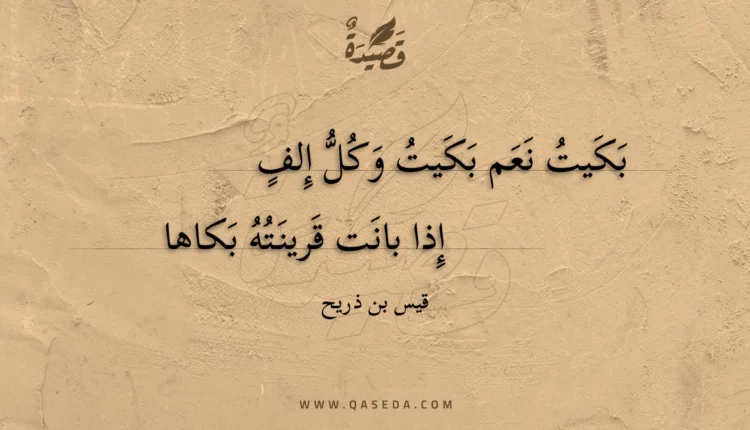 قَصِيدَةٌ
بَكَيتُ نَعَم بَكَيتُ وَكُلُّ إِلفٍ
إِذا بانَت قَرينَتُهُ بَكاها
قيس بن ذريح
WWW.QASEDA.COM